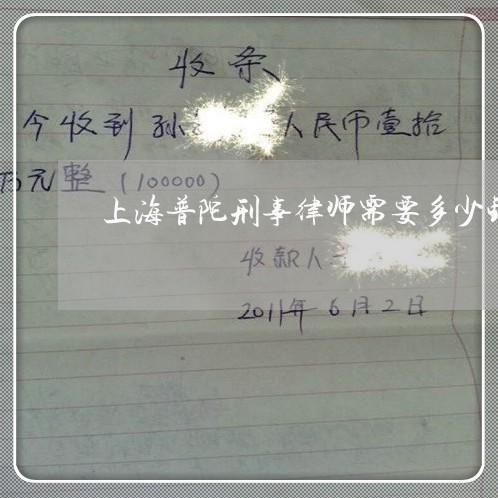 收条
今收到孙人民币壹拾
万元整(100000)
上海普陀刑事律师需要多少
收款人
2011年6月2日